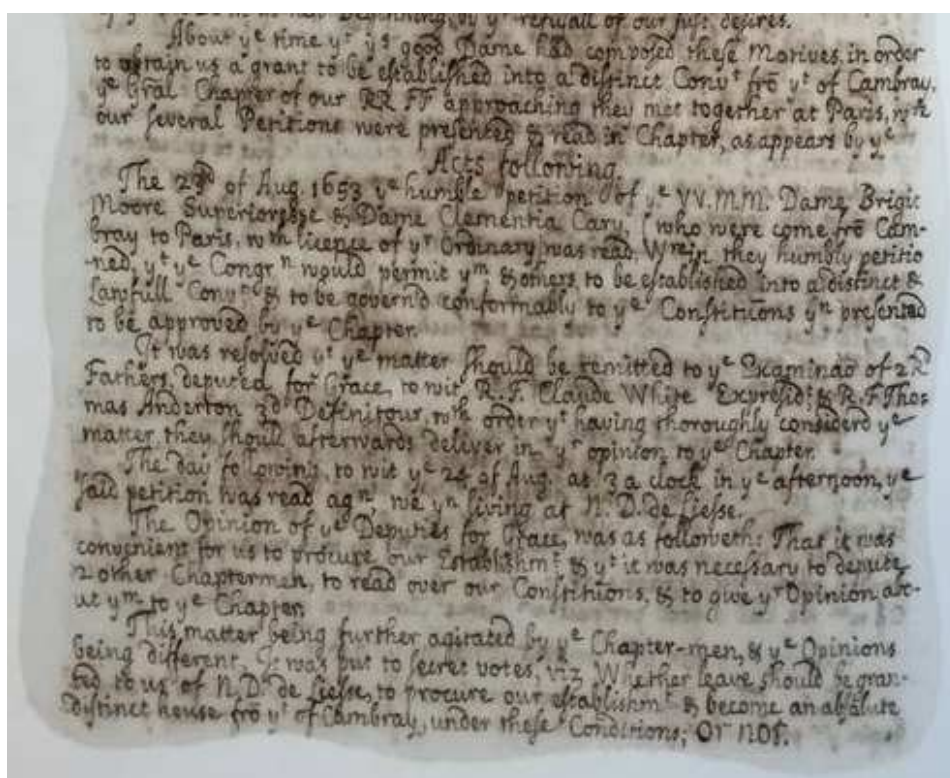 Beginning, by yr refusall of our just desires.
About ye time yt ys good Dame had composed these Motives, in order
to obtain us a grant to be established into a distinct Convt frō yt of Cambray,
ye Gral Chapter of our RR FF approaching they met together at Paris, wh
our several Petitions were presented & read in Chapter, as appears by ye
Acts following.
The 23d of Aug. 1653 ye humble petition of ye VV.MM. Dame Brigit
Moore Superioresse & Dame Clementia Cary, (who were come frō Cam-
bray to Paris, wth licence of yr Ordinary) was read, Wrein they humbly petitio
-ned, yt ye Congrn would permit ym & others to be established into a distinct &
Lawfull Convt & to be governd conformably to ye Constituōns yn presented
to be approved by ye Chapter.
It was resolved yt ye matter should be remitted to ye Examinaō of 2 R
Fathers, deputed for Grace, to wit, R. F. Claude White Expresidt & R. F Tho-
mas Anderton 3d Definitour, wth order yt having thoroughly considerd ye
matter, they should afterwards deliver in yr opinion to ye Chapter.
The day following, to wit ye 24 of Aug. at 3 a clock in ye afternoon, ye
said petition was read agn, we yn living at N. D. de Liesse.
The Opinion of ye Deputies for Grace, was as followeth: That it was
convenient for us to procure our Establishmt & yt it was necessary to depute
2 other Chaptermen, to read over our Constituions, & to give yr Opinion abo-
ut ym to ye Chapter.
This matter being further agitated by ye Chapter-men, & ye Opinions
being different, It was put to secret votes, viz Whether leave should be gran-
ted to us of N. D. de Liesse, to procure our establishmt & become an absolute
distinct house frō yt of Cambray, under these Conditions; Or not.